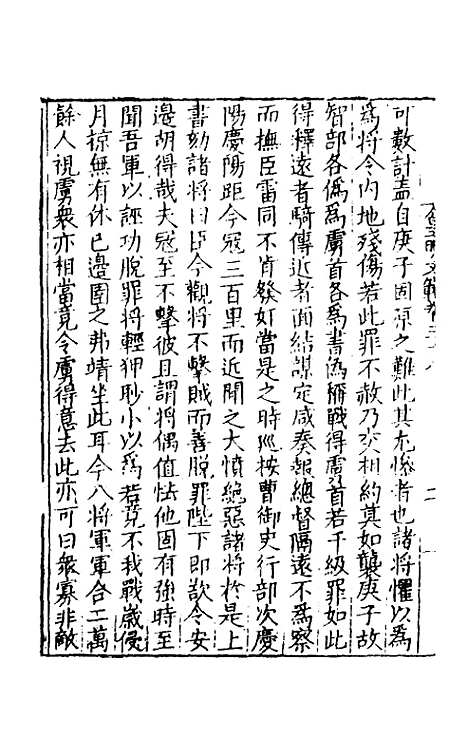 可數計蓋自庚子固原之難此其尤慘者也諸將懼以爲
爲將令內地殘傷若此罪不赦乃交相約其如襲庚子故
智部各僞爲虜首各爲書僞稱戰得虜首若干級罪如此
得釋遠者騎傳近者面結謀定咸奏報總督隔遠不爲察
而撫臣雷同不肯發奸當是之時廵按曹御史行部次慶
陽慶陽距今寇三百里而近聞之大憤絶惡諸將於是上
書劾諸將曰臣今觀將不擊賊而善脫罪陛下即欲令安
邊胡得哉夫冦至不擊彼且謂將偶值怯他固有強時至
聞吾軍以誣功脫罪將輕狎眇小以爲若竟不我戰歲侵
月掠無有休已邊圉之弗靖坐此耳今八將軍軍合二萬
餘人視虜衆亦相當竟令虜得意去此亦可曰衆寡非敵